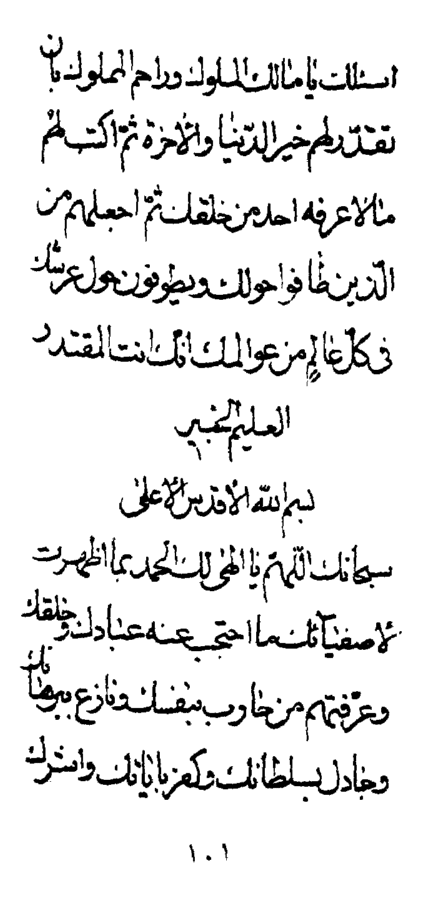 اسئلك يا مالك الملوك وراحم المملوك بان
تقدّر لهم خير الدّنيا والاخرة ثمّ اكتب لهم
ما لا عرفه احد من خلقك ثمّ اجعلهم من
الّذين طافوا حولك ويطوفون حول عرشك
فى كلّ عالمٍ من عوالمك انّك انت المقتدر
العليم الخبير
بسم الله الاقدس الاعلى
سبحانك اللّهمّ يا الهى لك الحمد بما اظهرت
لاصفيآئك ما احتجب عنه عبادك وخلقك
وعرّفتهم من حارب بنفسك ونازع ببرهانك
وجادل بسلطانك وكفر باياتك واشرك
١٠١